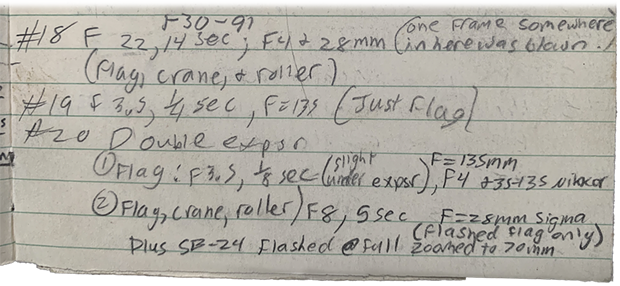 F30-91
#18 F 22, 14 sec; F4 + 28mm (one frame somewhere in here was blown.)
(flag, crane, + roller)
#19 F 3.5, 1/4 sec, F=135 (Just Flag)
#20 Double expsr
① Flag: F3.5, 1/8 sec (slight under expsr), F=135mm F4 +35-135 Nikkor
② Flag, crane, roller) F8, 5 sec F=28mm Sigma
(flashed flag only)
Plus SB-24 flashed @ full zoomed to 70mm